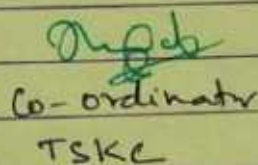 Co-ordinator
TSKC